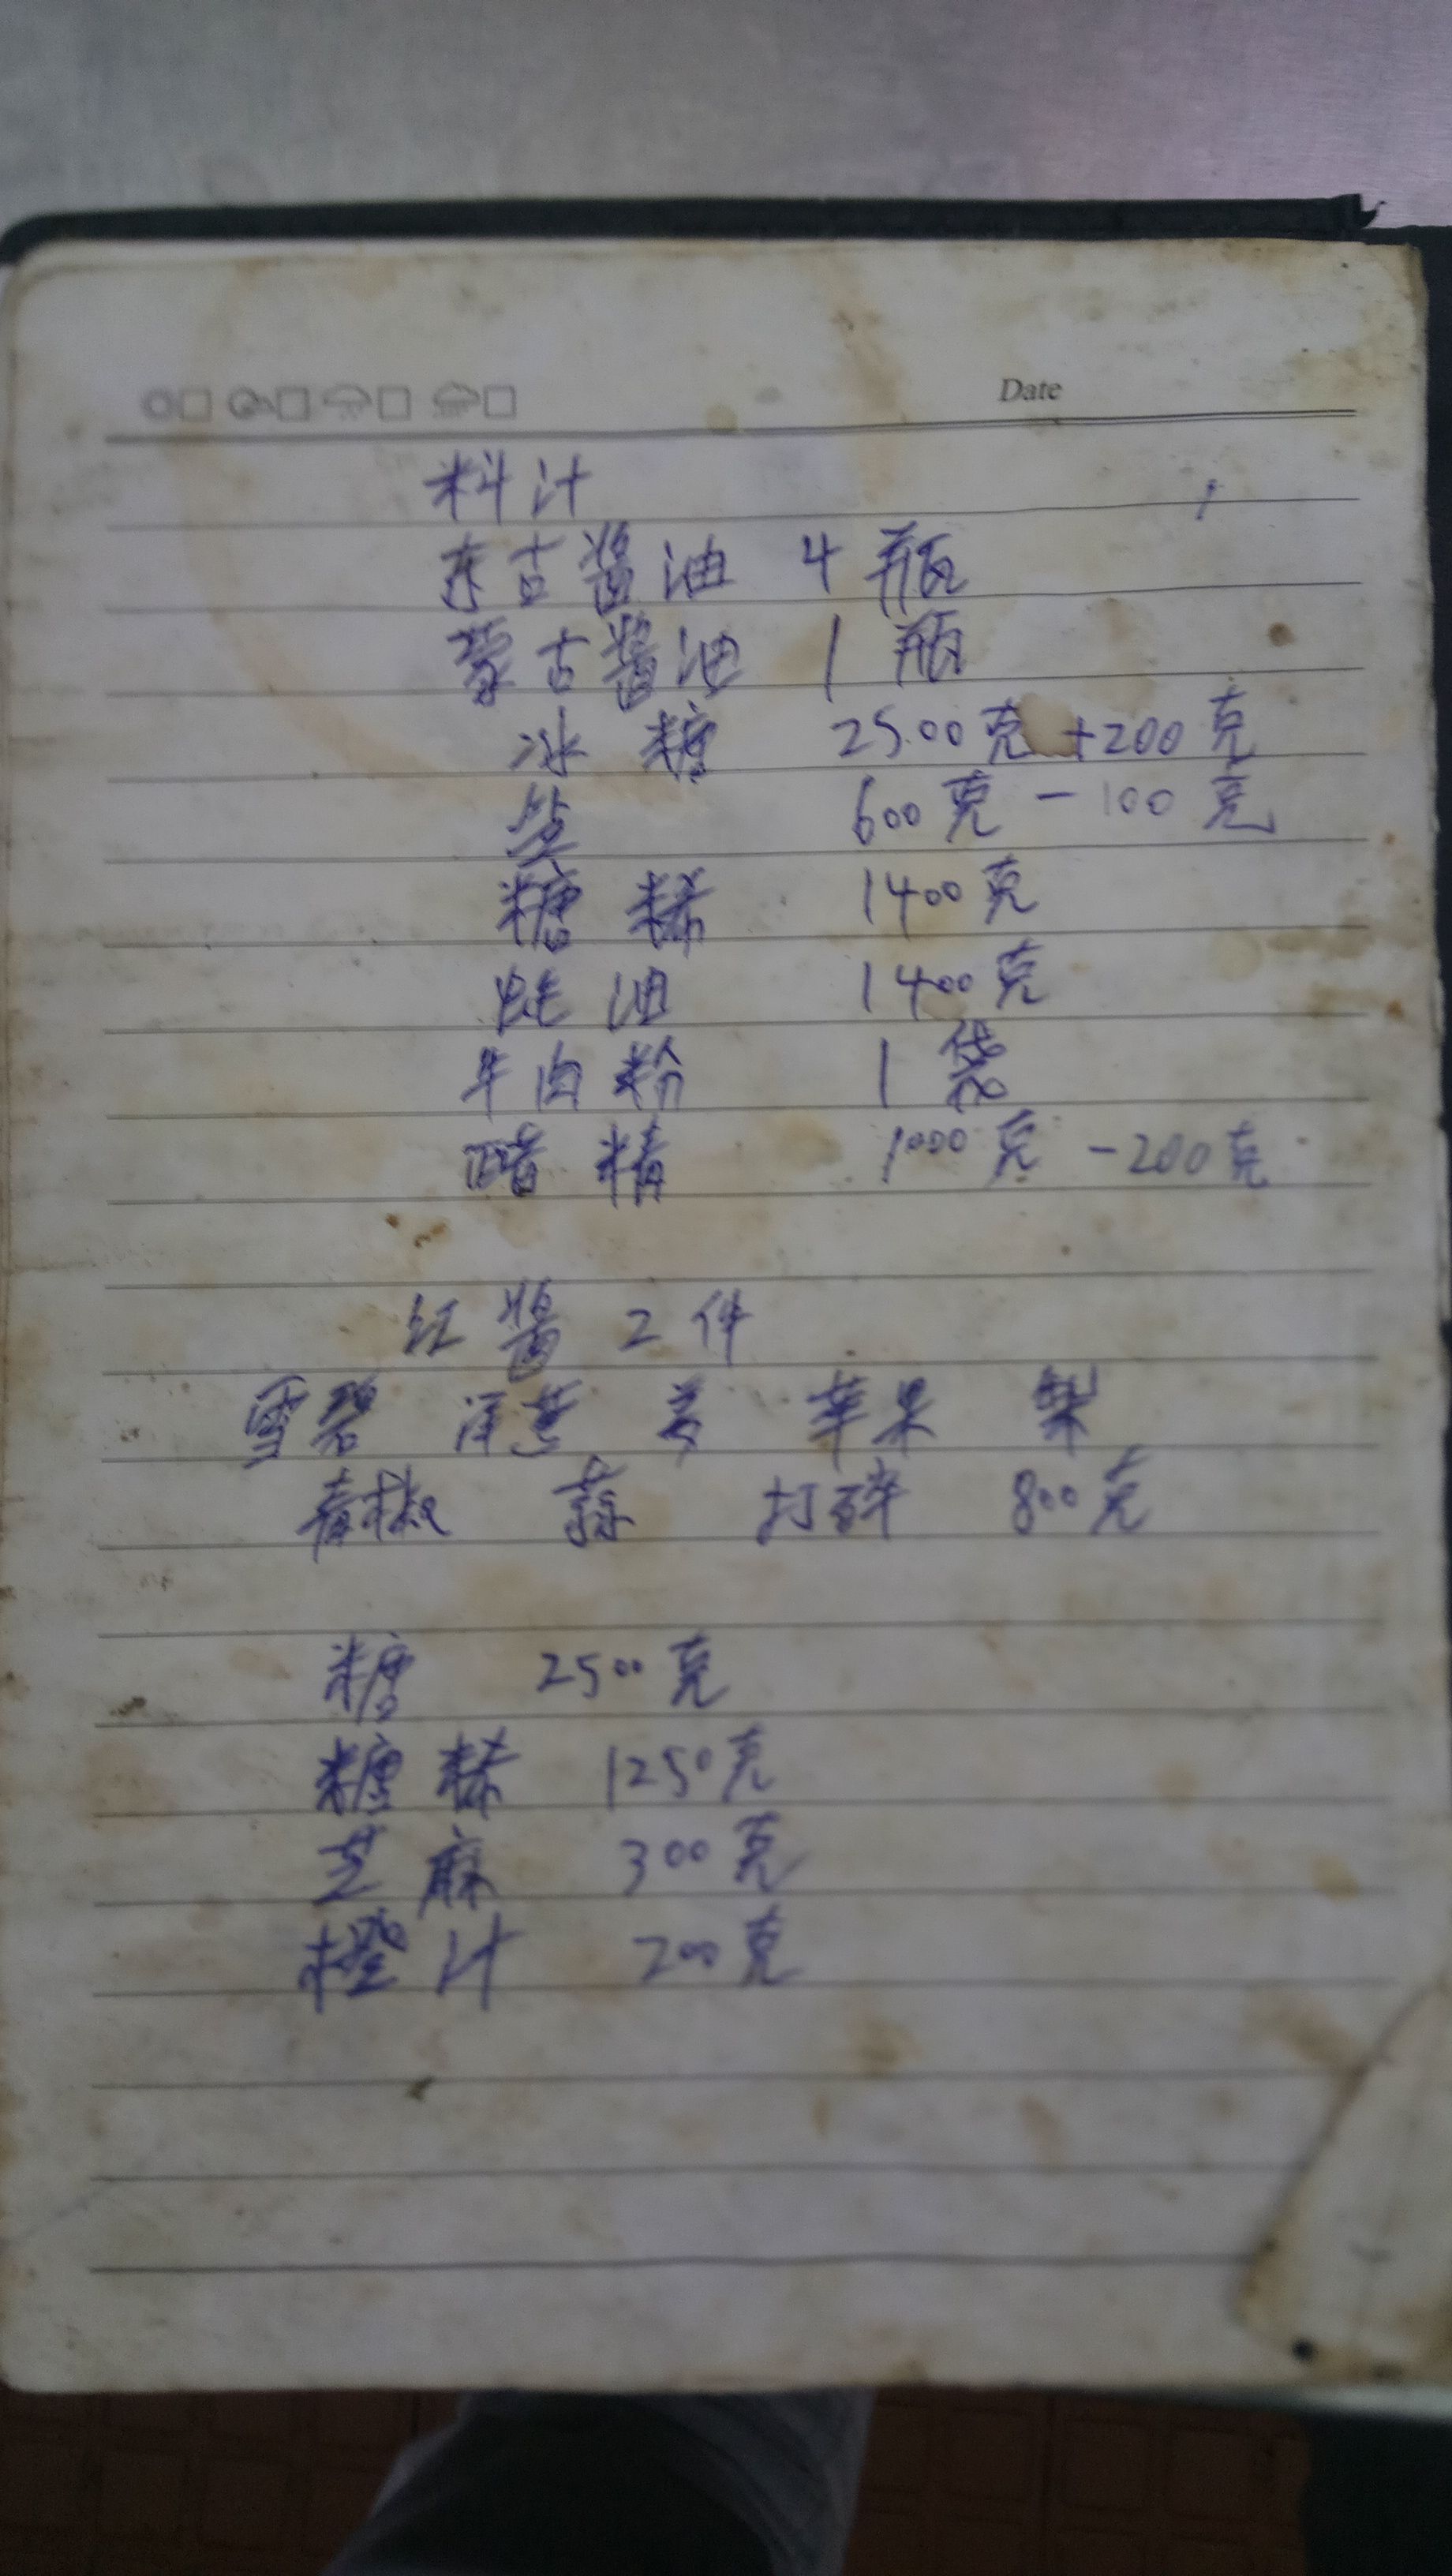 Date
料汁
东古酱油 4 瓶
蒙古酱油 1 瓶
冰 糖 2500克 +200克
盐 600克 -100克
糖 稀 1400克
蚝 油 1400克
牛肉粉 1 袋
醋 精 1000克 -200克
红 酱 2 件
雪碧 洋葱 姜 苹果 梨
青椒 蒜 打碎 800克
糖 2500克
糖 稀 1250克
芝 麻 300克
橙 汁 200克